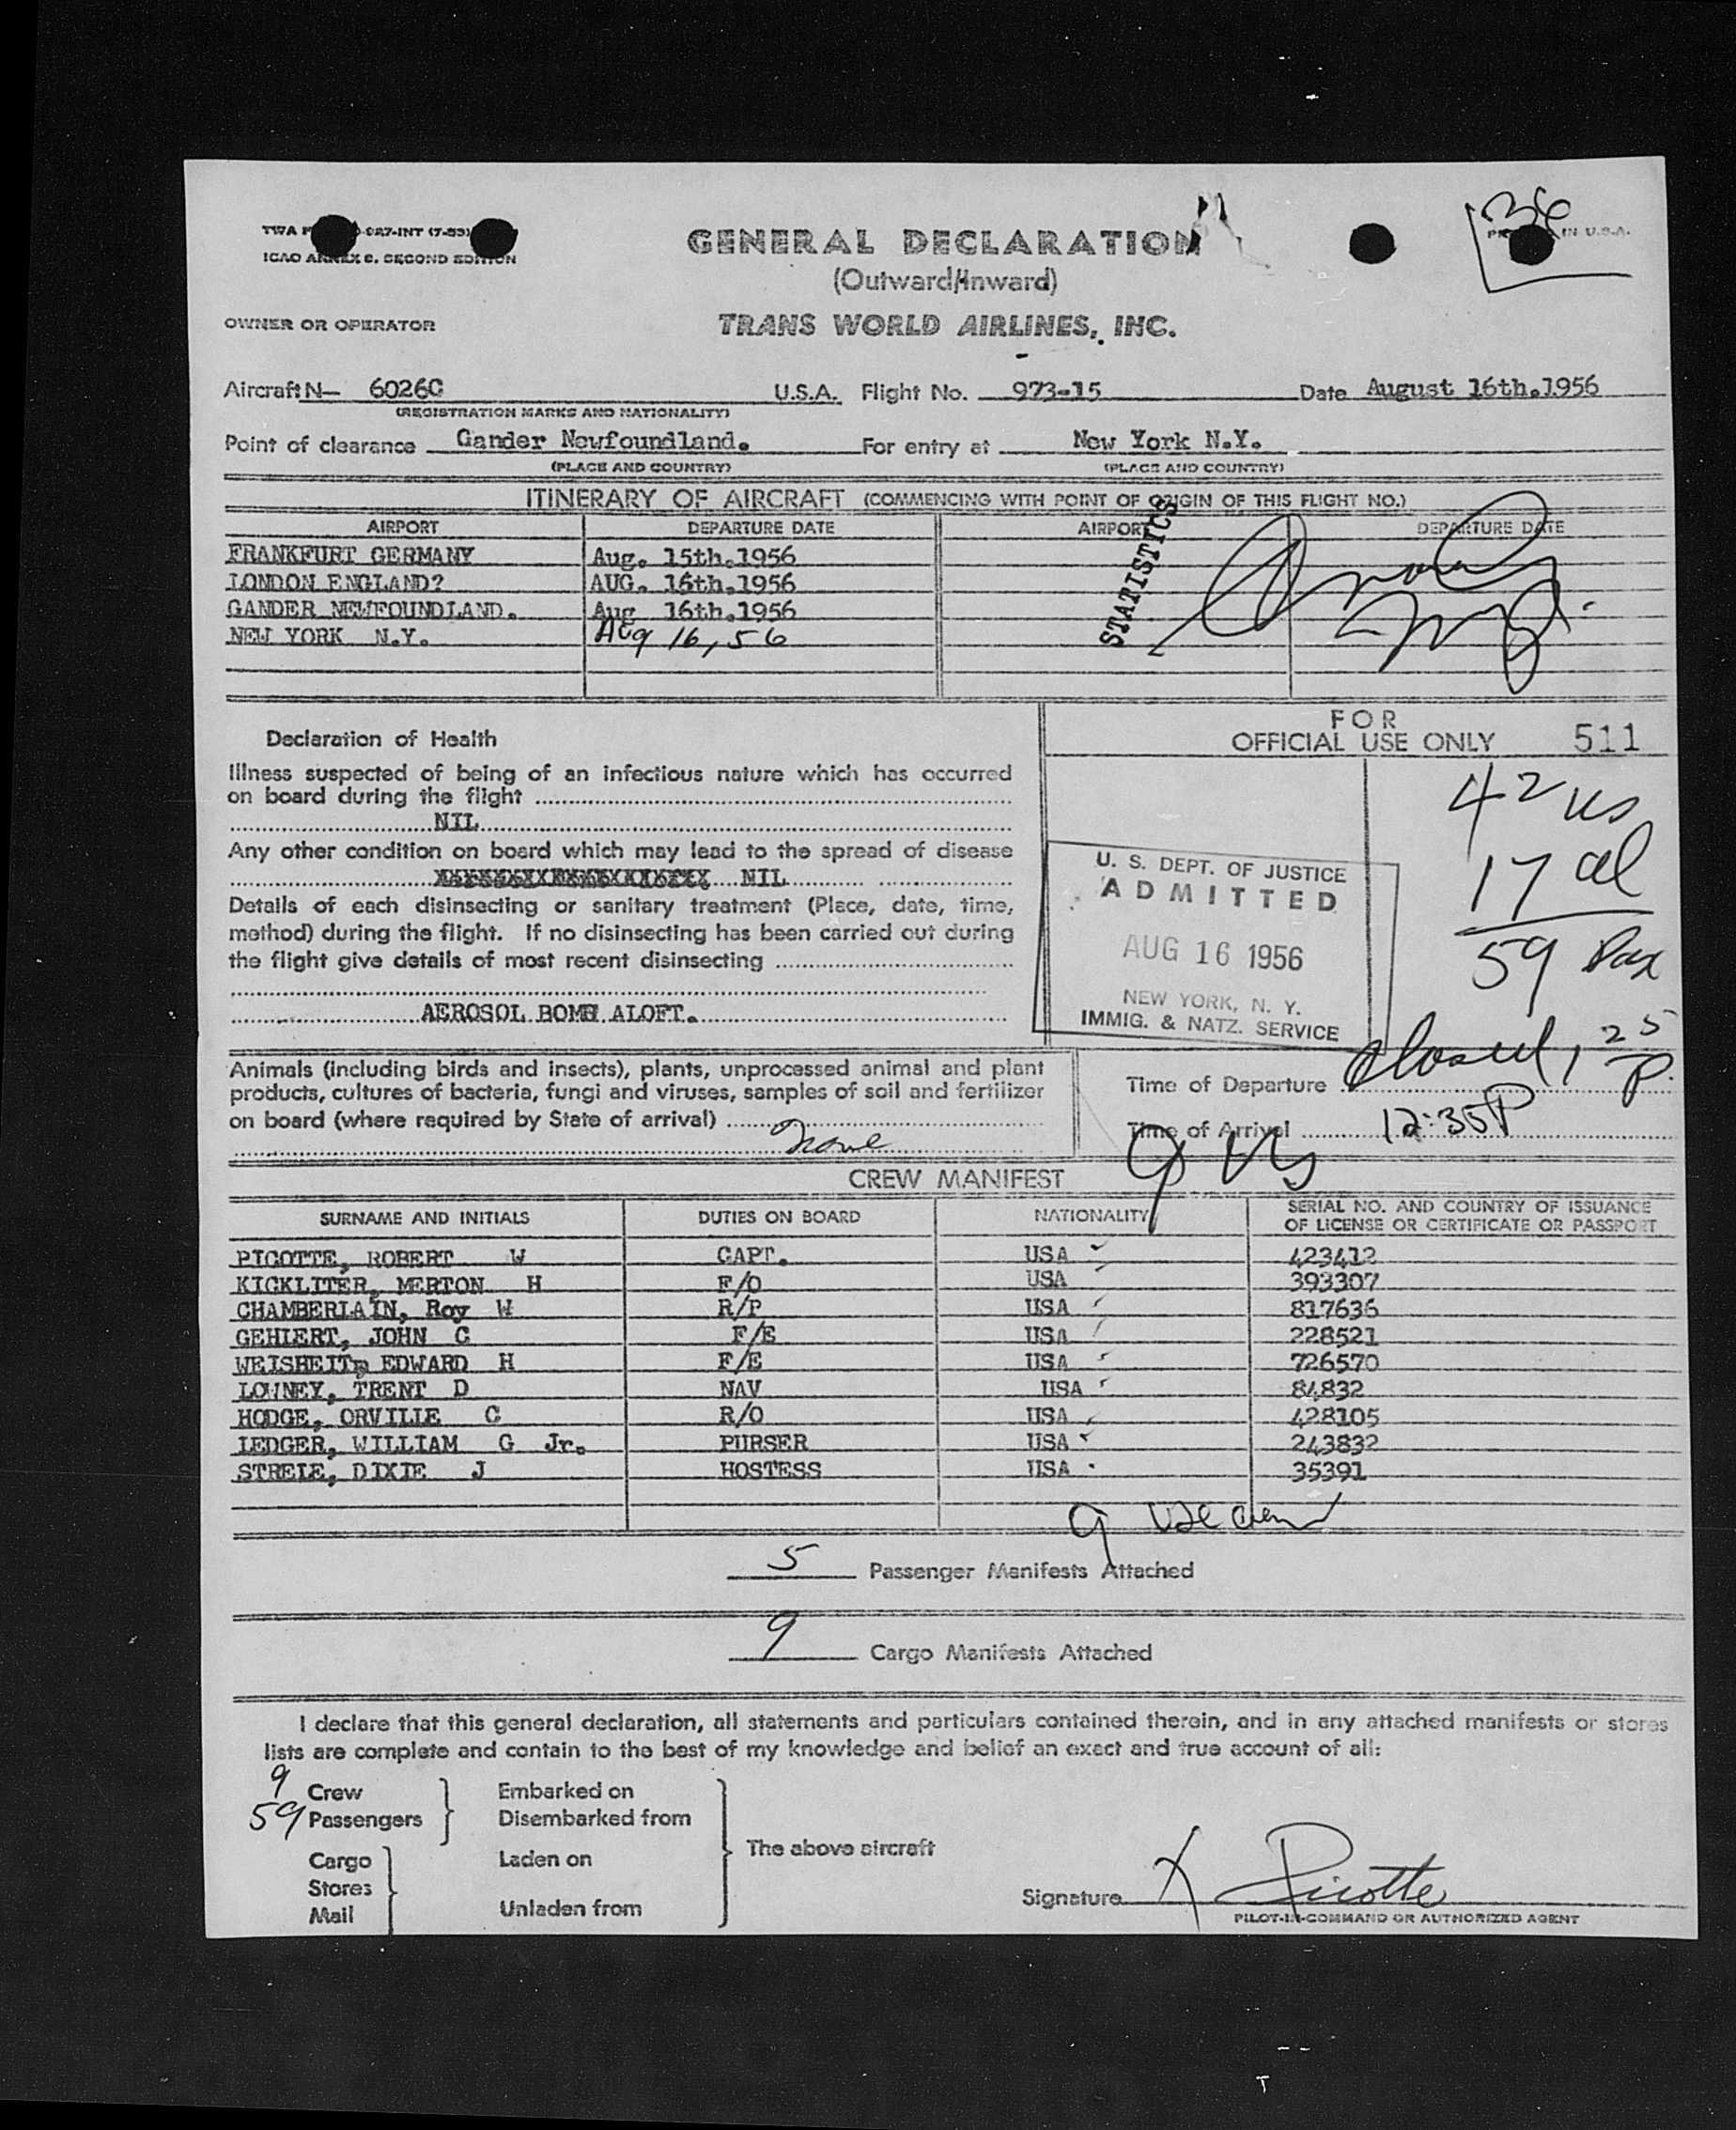 36
PR IN U.S.A.
TWA F -027-INT (7-53)
ICAO ANNEX 9, SECOND EDITION
GENERAL DECLARATION
(Outward/Inward)
OWNER OR OPERATOR TRANS WORLD AIRLINES, INC.
Aircraft N— 6026C U.S.A. Flight No. 973-15 Date August 16th.1956
(REGISTRATION MARKS AND NATIONALITY)
Point of clearance Gander Newfoundland. For entry at New York N.Y.
(PLACE AND COUNTRY) (PLACE AND COUNTRY)
ITINERARY OF AIRCRAFT (COMMENCING WITH POINT OF ORIGIN OF THIS FLIGHT NO.)
AIRPORT DEPARTURE DATE AIRPORT DEPARTURE DATE
FRANKFURT GERMANY Aug. 15th.1956
LONDON ENGLAND? AUG. 16th.1956
GANDER NEWFOUNDLAND. Aug 16th.1956
NEW YORK N.Y. Aug 16, 56
STATISTICS
Declaration of Health
Illness suspected of being of an infectious nature which has occurred
on board during the flight
NIL
Any other condition on board which may lead to the spread of disease
NIL
Details of each disinsecting or sanitary treatment (Place, date, time,
method) during the flight. If no disinsecting has been carried out during
the flight give details of most recent disinsecting
AEROSOL BOMB ALOFT.
FOR
OFFICIAL USE ONLY 511
42 us
17 al
59 Pax
U. S. DEPT. OF JUSTICE
ADMITTED
AUG 16 1956
NEW YORK, N. Y.
IMMIG. & NATZ. SERVICE
Animals (including birds and insects), plants, unprocessed animal and plant
products, cultures of bacteria, fungi and viruses, samples of soil and fertilizer
on board (where required by State of arrival)
none
Time of Departure closed 1 25 P.
Time of Arrival 12:35P
9 US
CREW MANIFEST
SURNAME AND INITIALS DUTIES ON BOARD NATIONALITY SERIAL NO. AND COUNTRY OF ISSUANCE
OF LICENSE OR CERTIFICATE OR PASSPORT
PICOTTE, ROBERT W CAPT. USA 423412
KICKLITER, MERTON H F/O USA 393307
CHAMBERLAIN, Roy W R/P USA 817636
GEHLERT, JOHN C F/E USA 228521
WEISHEIT, EDWARD H F/E USA 726570
LOWNEY, TRENT D NAV USA 84832
HODGE, ORVILLE C R/O USA 428105
LEDGER, WILLIAM G Jr. PURSER USA 243832
STEELE, DIXIE J HOSTESS USA 35391
9
5 Passenger Manifests Attached
9 Cargo Manifests Attached
I declare that this general declaration, all statements and particulars contained therein, and in any attached manifests or stores
lists are complete and contain to the best of my knowledge and belief an exact and true account of all:
9 Crew Embarked on
59 Passengers Disembarked from
The above aircraft
Cargo Laden on
Stores
Mail Unladen from
Signature X Picotte
PILOT-IN-COMMAND OR AUTHORIZED AGENT